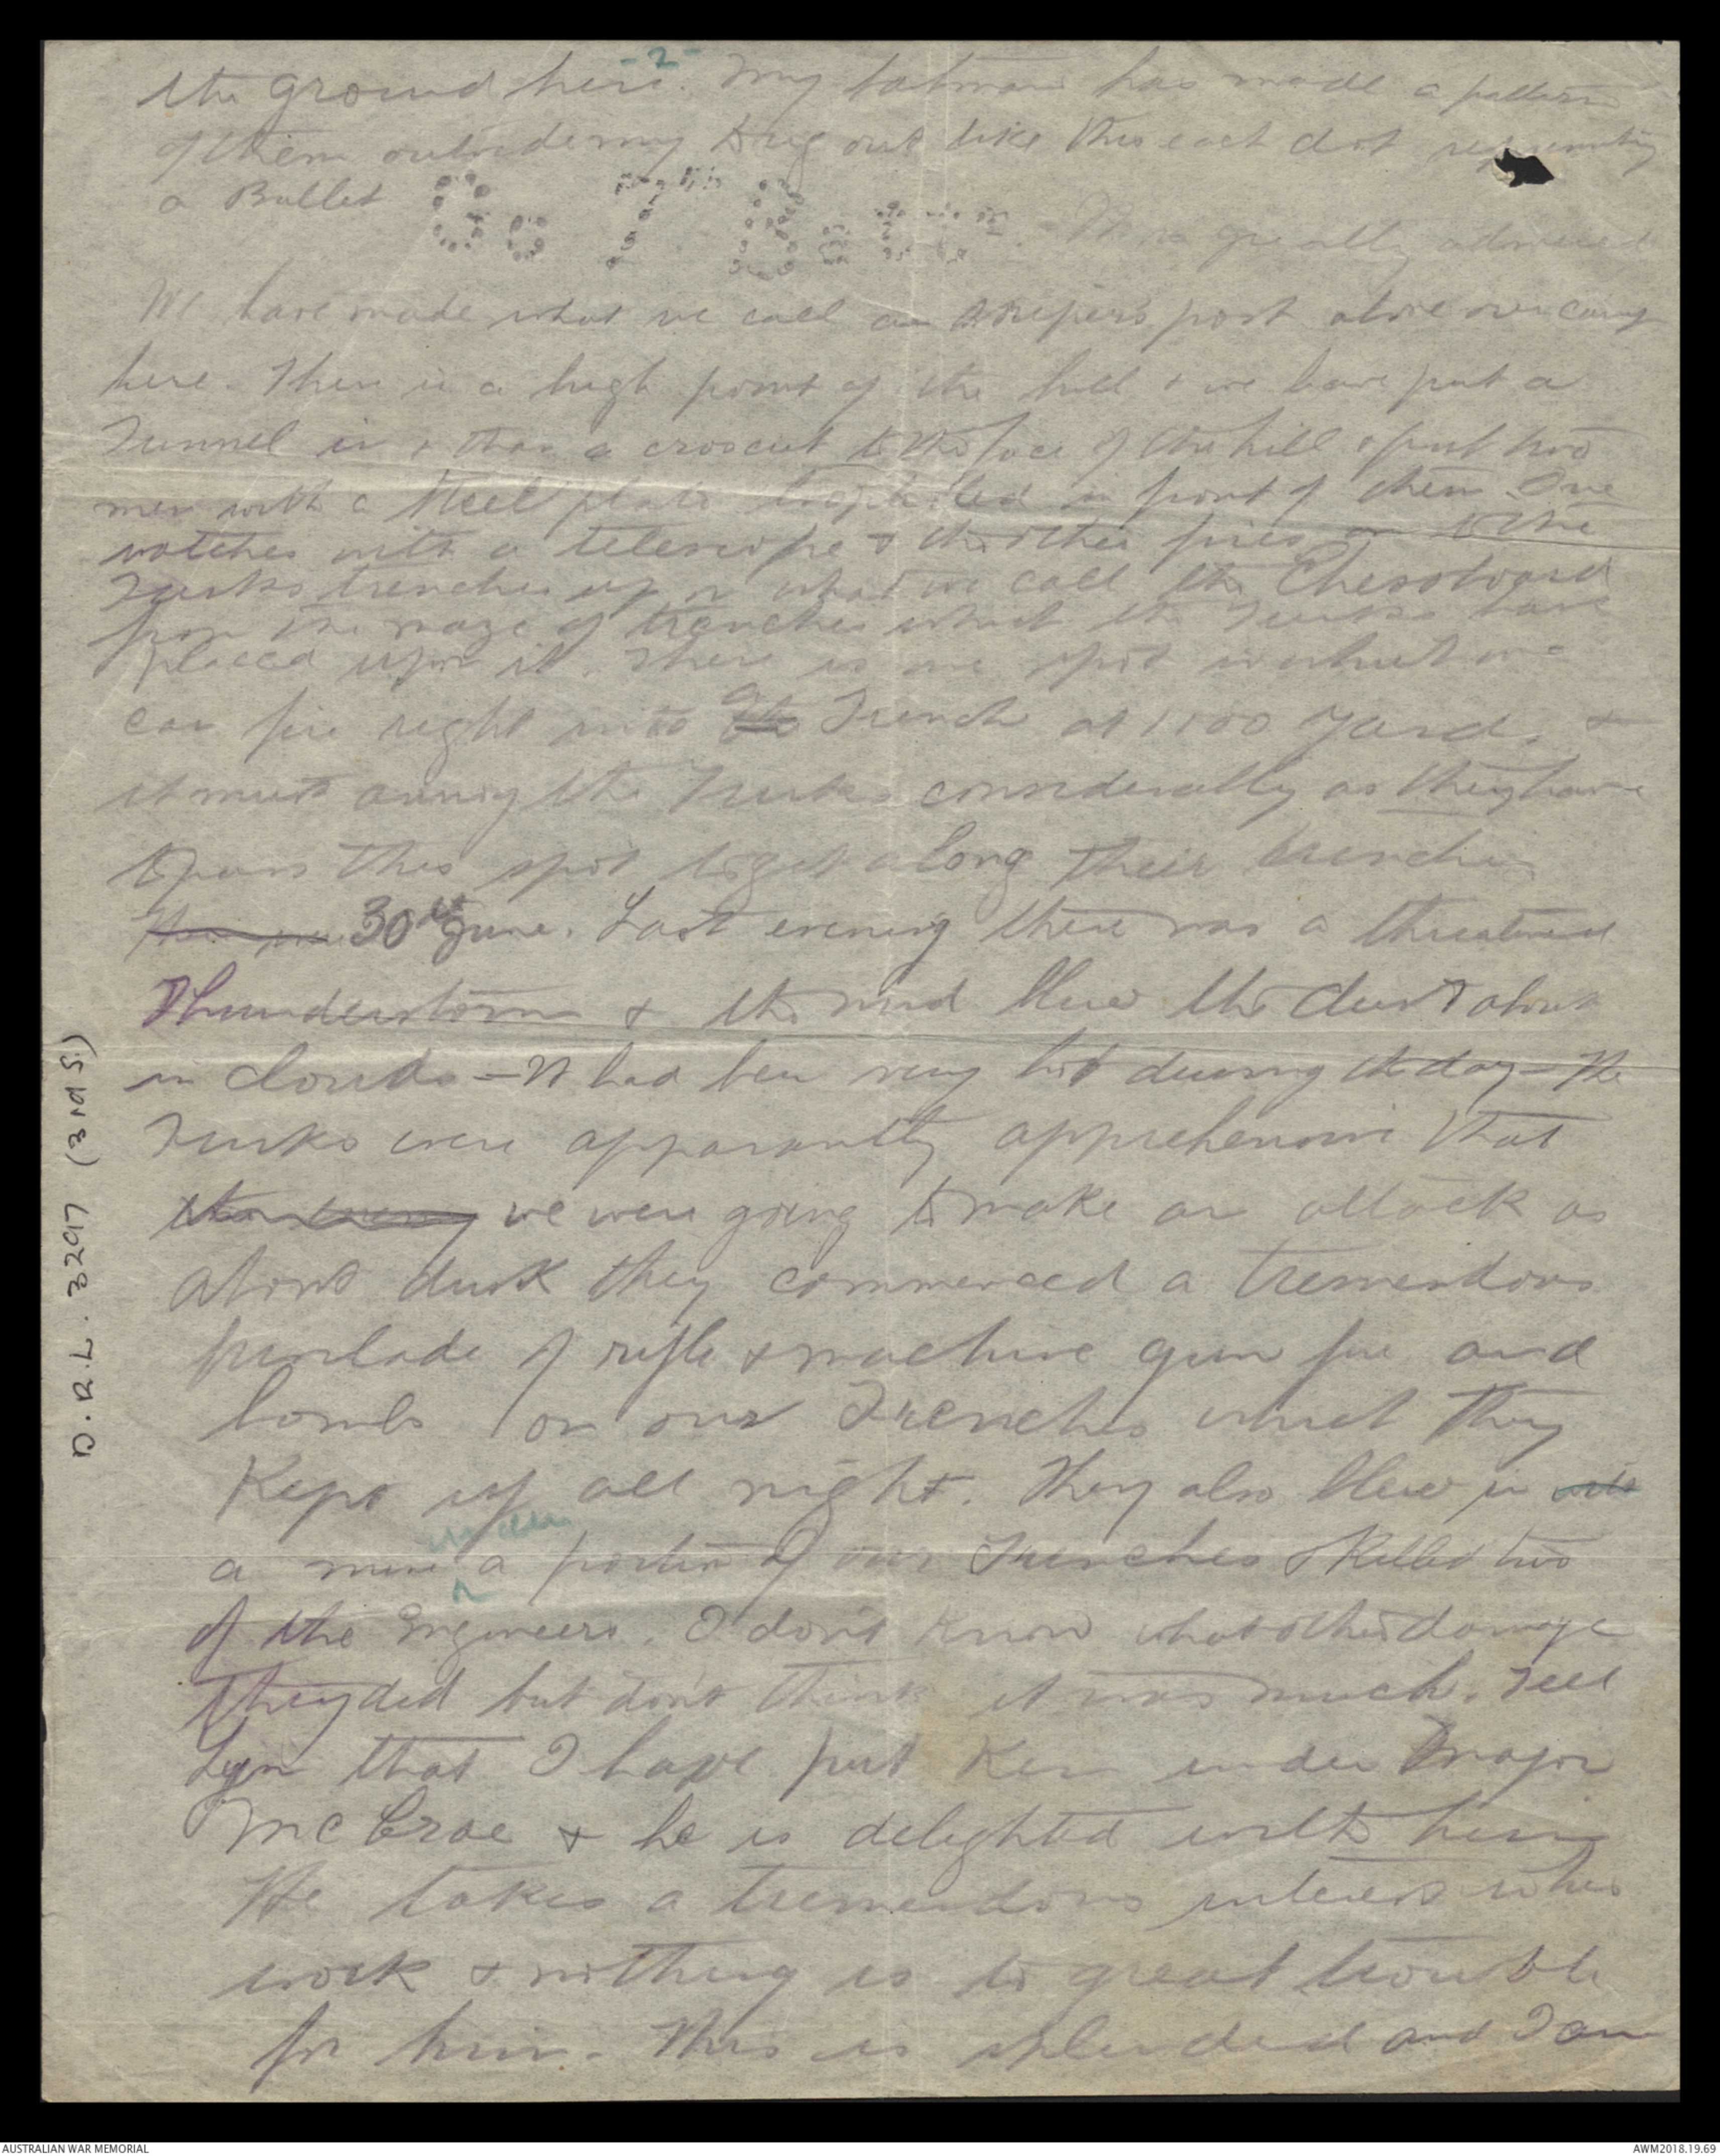 - 2 -
the ground here. My batman has made a pattern
of them outside my dug out like this each dot representing
a Bullet Co 7 Batt. It is greatly admired
We have made what we call a snipers post above our camp
here. There is a high point of the hill & we have put a
Tunnel in & then a crosscut to the face of the hill & put two
men with a steel plate loopholed in front of them. One
watches with a telescope & the other fires on to the
Turks trenches up on what we call the Chessboard
from the maze of trenches which the Turks have
placed upon it. There is one spot in which we
can fire right into the a Trench at 1100 yards &
it must annoy the Turks considerably as they have
to pass this spot to get along their trenches
30th June. Last evening there was a threatened
Thunderstorm & the wind blew the dust about
in clouds - It had been very hot during the day - The
Turks were apparantly apprehensive that
we were going to make an attack as
about dusk they commenced a tremendous
fusilade of rifle & machine gun fire and
bombs on our Trenches which they
kept up all night. They also blew in
a mine under a portion of our Trenches & killed two
of the Engineers. I dont know what other damage
they did but dont think it was much. Tell
Lyn that I have put Ken under Major
McCrae & he is delighted with him
He takes a tremendous interest in his
work & nothing is to great trouble
for him. This is splendid and I am
D.R.L. 3297 (3rd S.)
AUSTRALIAN WAR MEMORIAL
AWM2018.19.69